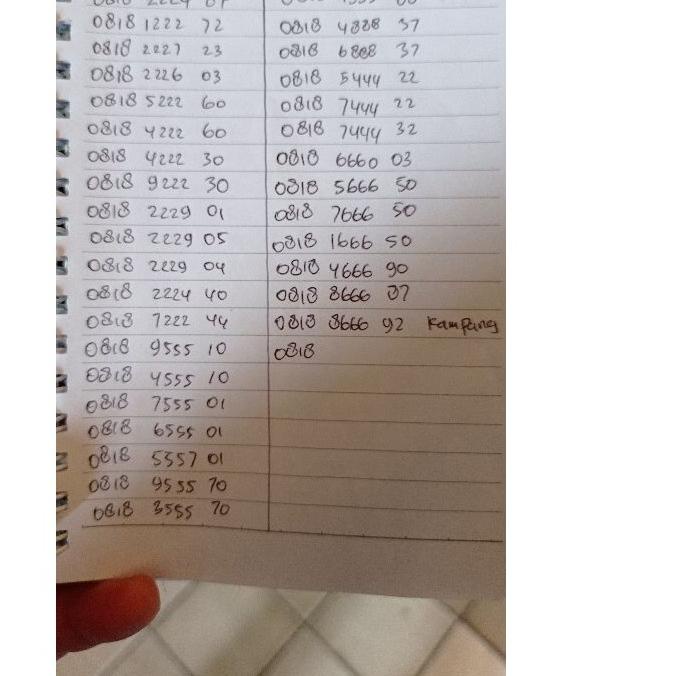 0818 1222 72
0818 2227 23
0818 2226 03
0818 5222 60
0818 4222 60
0818 4222 30
0818 9222 30
0818 2229 01
0818 2229 05
0818 2229 04
0818 2224 40
0818 7222 44
0818 9555 10
0818 4555 10
0818 7555 01
0818 6555 01
0818 5557 01
0818 9555 70
0818 3555 70
0818 4888 37
0818 6888 37
0818 5444 22
0818 7444 22
0818 7444 32
0818 6660 03
0818 5666 50
0818 7666 50
0818 1666 50
0818 4666 90
0818 8666 07
0818 8666 92 Kampang
0818